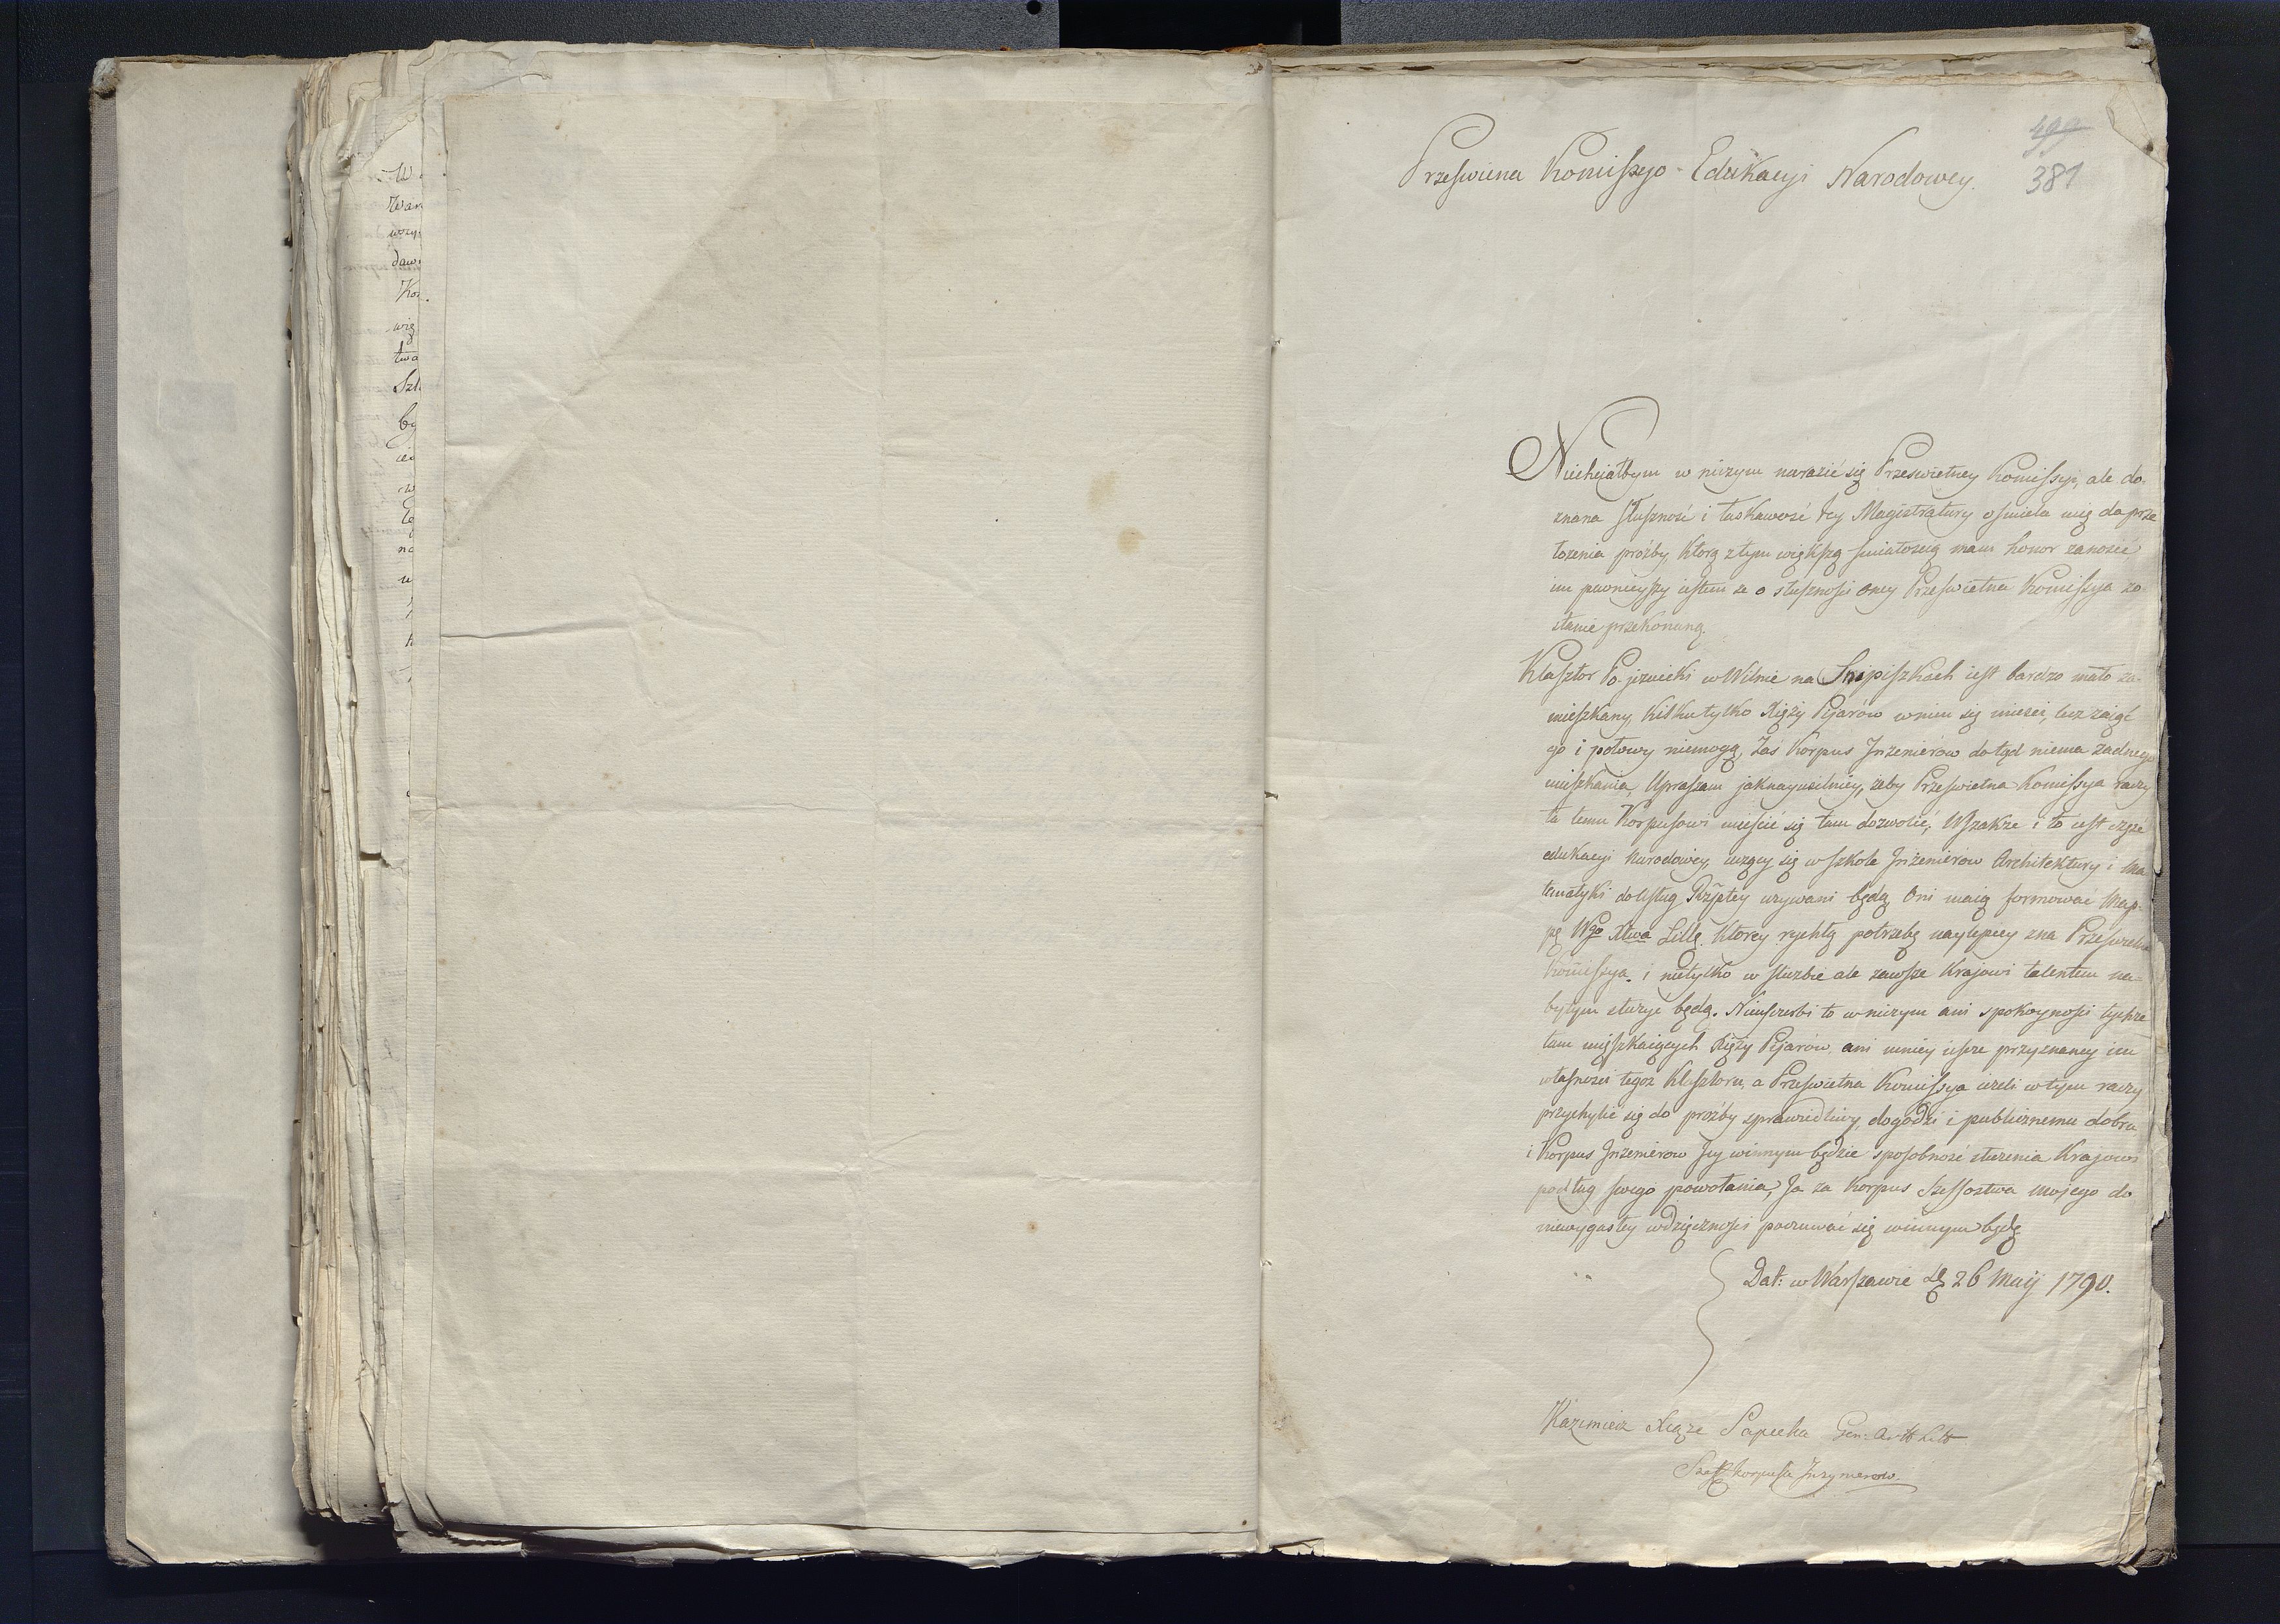 499
381
Przeswietna Komissyo Edukacyi Narodowey.
Niechciałbym w niczym narazić się Przeswietney Komissyi, ale do-
znana słuszność i łaskawość Jey Magistratury osmiela mię do prze
łożenia prożby, którą z tym większą smiałoscią mam honor zanosić,
im pewnieyszy iestem że o słusznosci oney Przeswietna Komissya zo-
stanie przekonaną.
Klasztor Po-jezuicki w Wilnie na Snipiszkach iest bardzo mało za-
mieszkany, kilku tylko Xięży Pijarów w nim się miesci, lecz zaiąć
go i połowy niemogą, Zaś Korpus Inżenierów dotąd niema żadnego
mieszkania, Upraszam jaknayusilniey, żeby Przeswietna Komissya raczy
ła temu Korpusowi mieścić się tam dozwolić, Wszakże i to iest część
edukacyi narodowey, uczący się w szkole Inżenierow Architektury i Ma
tematyki do usług Rzpltey używani będą, Oni maią formować Map-
pę Wgo Xtwa Litt. ktorey rychłą potrzebę naylepiey zna Przeswietna
Komissya. i nietylko w służbie ale zawsze Krajowi talentem na-
bytym służyć będą. Nieuszczerbi to w niczym ani spokoynosci tychże
tam mięszkaiących Xięży Pijarów, ani mniey ieszcze przyznaney im
własności tegoż Klasztoru, a Przeswietna Komissya ieżeli w tym raczy
przychylić się do prożby sprawiedliwey, dogodzi i publicznemu dobru
i Korpus Inżenierow Jey winnym będzie sposobność służenia Krajowi
podług swego powołania, Ja za Korpus Szefostwa mojego do
niewygasłey wdzięcznosci poczuwać się winnym będę.
Dat: w Warszawie D 26 Maij 1790.
Kazimierz Xiąże Sapieha Gen: Art: Litt
Szeff korpusu Inzynierow